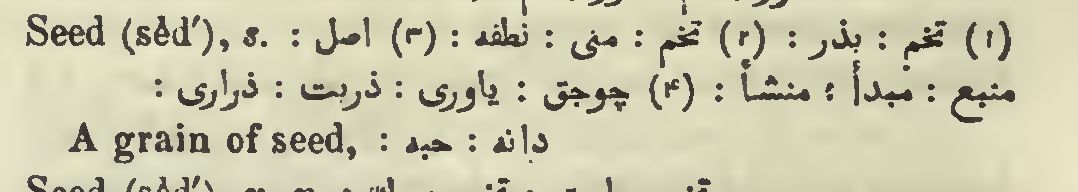 Seed (sēd′), s. : (۱) تخم : بذر : (۲) تخم : منی : نطفه : (۳) اصل :
منبع : مبدأ : منشأ : (۴) چوجق : یاوری : ذریت : ذراری :
A grain of seed, : دانه : حبه